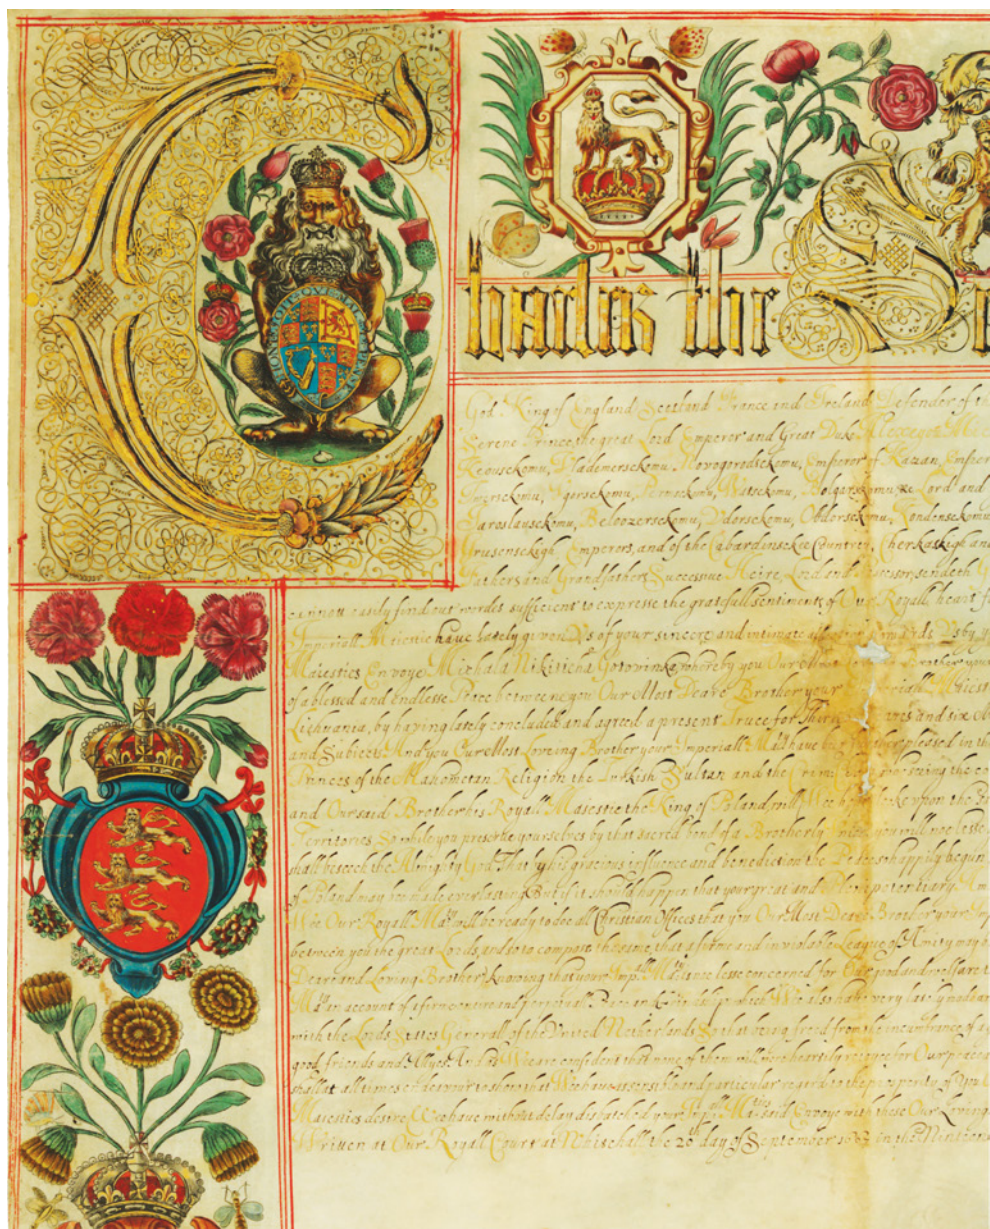 Charles the Se
God King of England Scotland France and Ireland Defender of th
Serene Prince the great Lord Emperor and Great Duke Alexey
Keousckomu, Vlademersckomu, Novogorodsckomu, Emperor of Kazan, Emperor
Twersckomu, Ugorsckomu, Permsckomu, Watsckomu, Bolgarskomu, &c Lord and
Jaroslausckomu, Beloozersckomu, Udorsckomu, Obdorsckomu, Kondensckomu
Grusensckigh Emperors, and of the Cabardinsckee Countrey, Cherkaskigh and
Fathers and Grandfathers Successive Heire, Lord and sendeth
cannott easily find out wordes sufficient to expresse the gratefull sentiments of Our Royall heart f
Imperiall Majestie have lately given Us of your sincere and intimate affection towards Us by y
Majesties Envoye Michala Nikiticha Gotovinka whereby you Our Most Brother your
of a blessed and endlesse Peace betweene you Our Most Deare Brother your Imperiall Majest
Lithuania, by having lately concluded and agreed a present Truce for yeares and six
and Subjects And you Our Most Loveing Brother your Imperiall Maty have pleased in th
Princes of the Mahometan Religion the Turkish Sultan and the Crim the co
and Our said Brother his Royall Majestie the King of Poland will Wee looke upon the
Territories, So while you preserve yourselves by that sacred bond of a Brotherly you will noe lesse
shall beseech the Almighty God That by his gracious influence and benediction the Peace so happily begun
of Poland may bee made everlasting But if it should happen that your great and Plenipotentiary Am
Wee Our Royall Maty will be ready to doe all Christian Offices that you Our Most Deare Brother your Imp
between you the great Lords, and so to compose the same, that a firme and inviolable League of Amity may
Deare and Loving Brother knowing that your Impll Maty is noe lesse concerned for Our good and welfare t
Maty an account of a firme entire and perpetuall Peace and which Wee also have very lately made
with the Lords States Generall of the United Netherlands So that being freed from the incumbrance of a
good friends and Allyes And as Wee are confident that none of them will more heartily rejoyce for Our peace
shall at all times endeavour to shew that Wee have a sensible and particular regard to the prosperity of You
Majesties desire, Wee have without delay dispatched your Impll Maties said Envoye with these Our Loving
Written at Our Royall Court at Whitehall the 20th day of September in the Ninteen